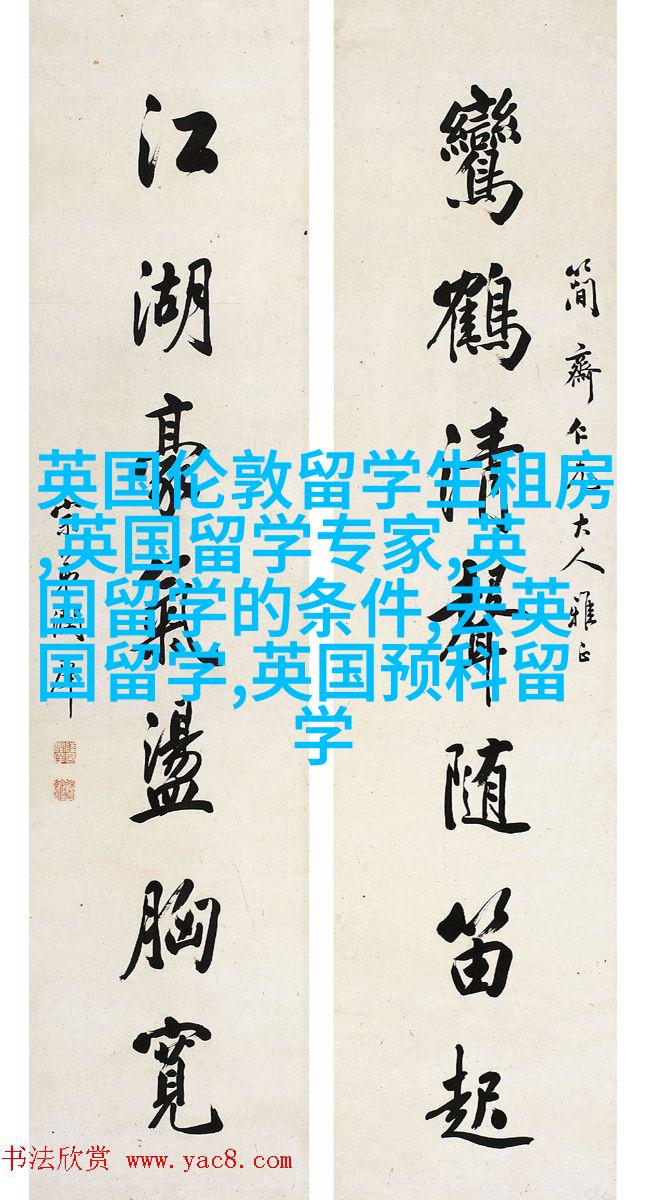 簡齋仁大人雅正
鸞鶴清聲随笛起
江湖豪氣盪胸寬
英国伦敦留学生租房
,英国留学专家,英
国留学的条件,去英
国留学,英国预科留
学
书法欣赏 www.yac8.com